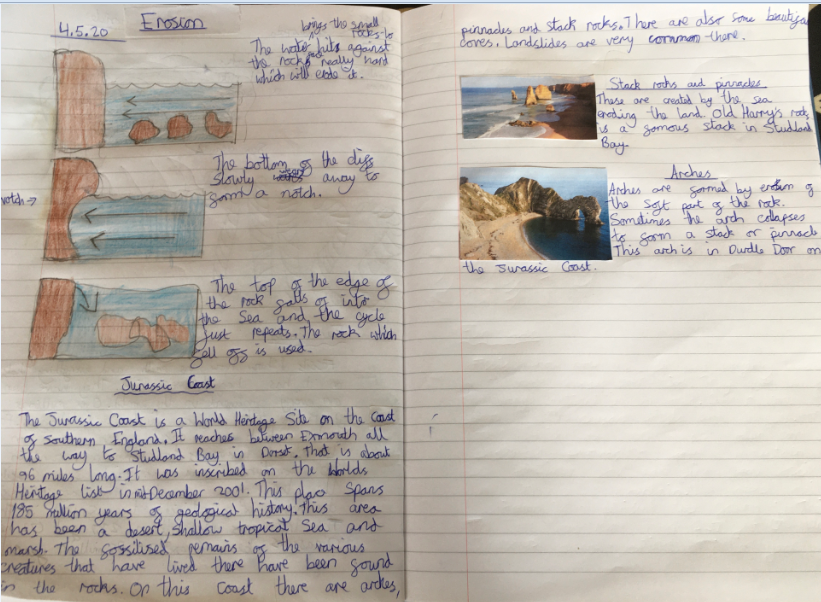 4.5.20
Erosion
brings the small
rocks to
The water hits against
the rock really hard
which will erode it.
The bottom of the cliff
slowly away to
form a notch.
notch →
The top of the edge of
the rock falls of into
the Sea and the cycle
Just repeats. The rock which
fell off is used.
Jurassic Coast
The Jurassic Coast is a World Heritage Site on the Coast
of Southern England. It reaches between Exmouth all
the way to Studland Bay in Dorset. That is about
96 miles long. It was inscribed on the Worlds
Heritage list in mid December 2001. This place spans
185 million years of geological history. This area
has been a desert, Shallow tropical Sea and
marsh. The fossilised remains of the various
creatures that have lived there have been found
in the rocks. On this Coast there are arches,
pinnacles and stack rocks. There are also some beautiful
coves. Landslides are very common there.
Stack rocks and pinnacles
These are created by the sea
eroding the land. Old Harry's rock
is a famous stack in Studland
Bay.
Arches
Arches are formed by erosion of
the soft part of the rock.
Sometimes the arch collapses
to form a stack or pinnacle
This arch is in Durdle Door on
the Jurassic Coast.